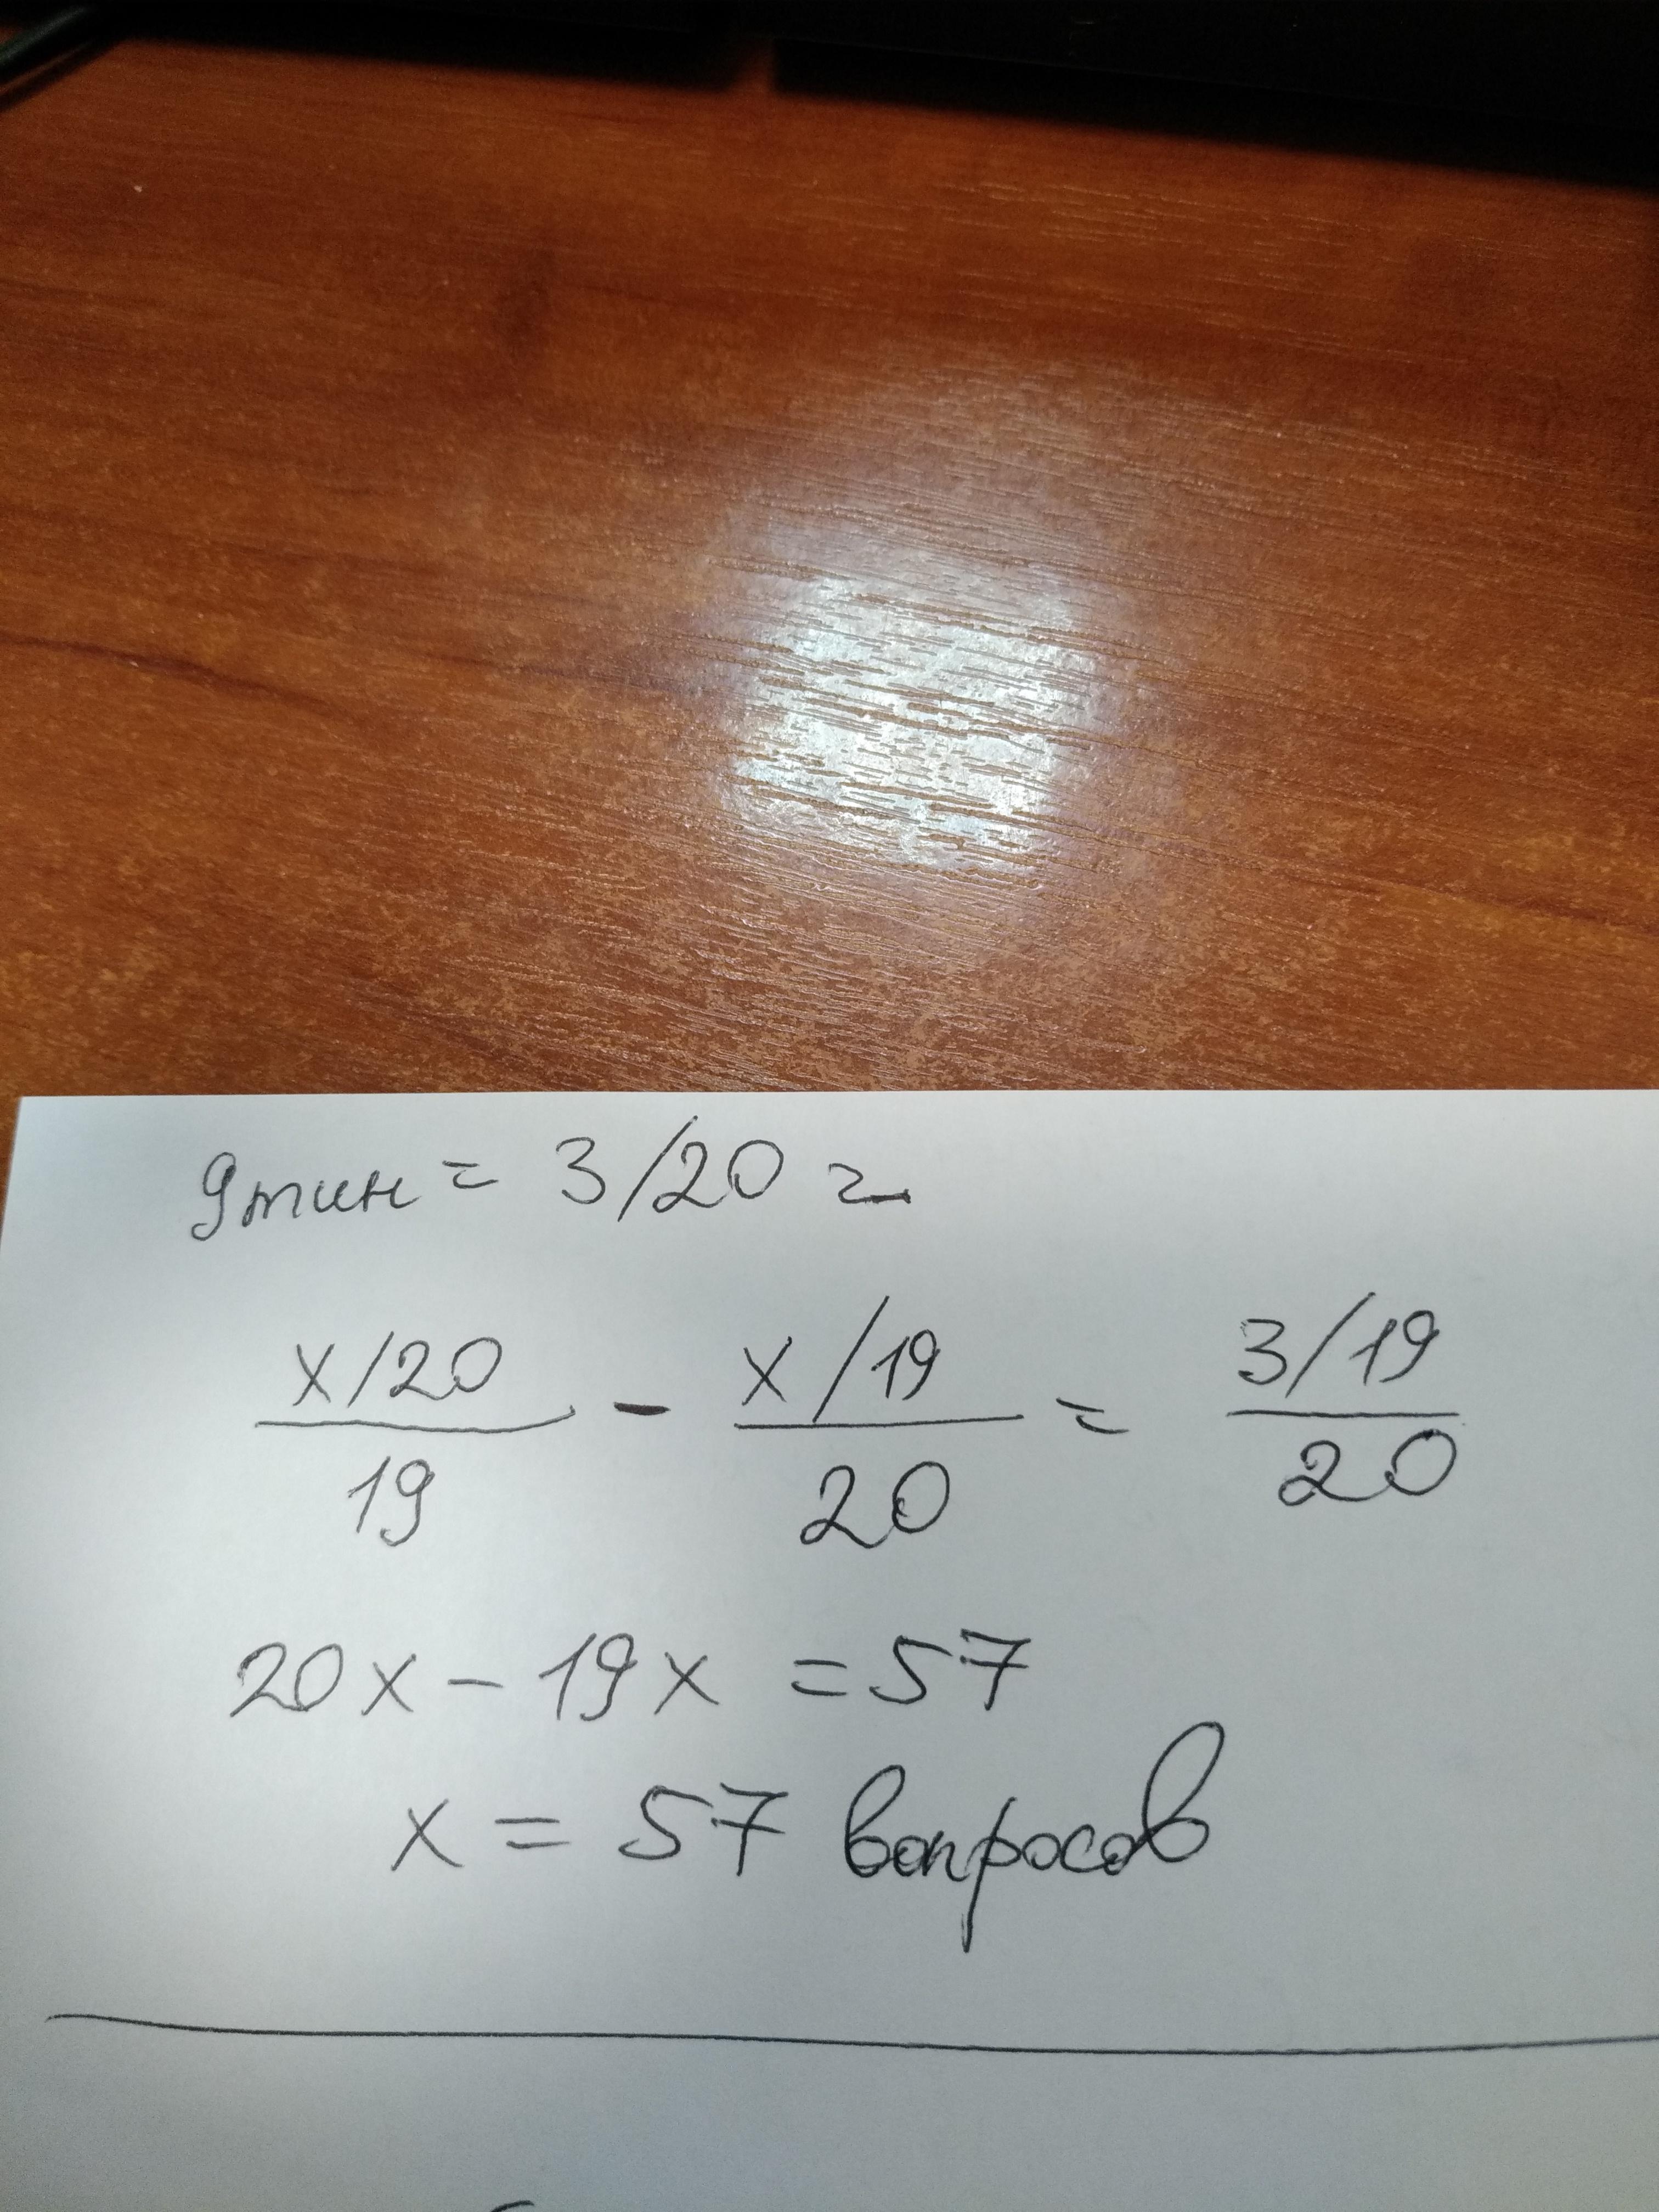 9 мин = 3/20 ч
x/20 - x/19 = 3/19
19 20 20
20x - 19x = 57
x = 57 вопросов